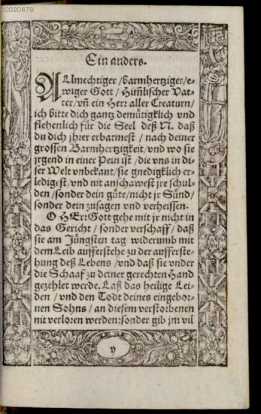 Ein anders.
ALlmechtiger / barmhertziger / e⸗
wiger Gott / Him̃lischer Vat⸗
ter / vñ ein Herr aller Creaturn /
ich bitte dich gantz demütigklich vnd
flehenlich für die Seel deß N. daß
du dich jhrer erbarmest / nach deiner
grossen Barmhertzigkeit / vnd wo sie
jrgend in einer Pein ist / die vns in di⸗
ser Welt vnbekant / sie gnedigklich er⸗
ledigst / vnd nit anschawest jre schul⸗
den / sonder dein güte / nicht jr Sünd /
sonder dein zusagen vnd verheissen.
O HErr Gott gehe mit jr nicht in
das Gericht / sonder verschaff / daß
sie am Jüngsten tag widerumb mit
dem Leib aufferstehe zu der aufferste⸗
hung deß Lebens / vnd daß sie vnder
die Schaaf zu deiner gerechten Hand
gezehlet werde. Laß das heilige Lei⸗
den / vnd den Todt deines eingebor⸗
nen Sohns / an diesem verstorbenen
nit verloren werden: sonder gib jm vil
v